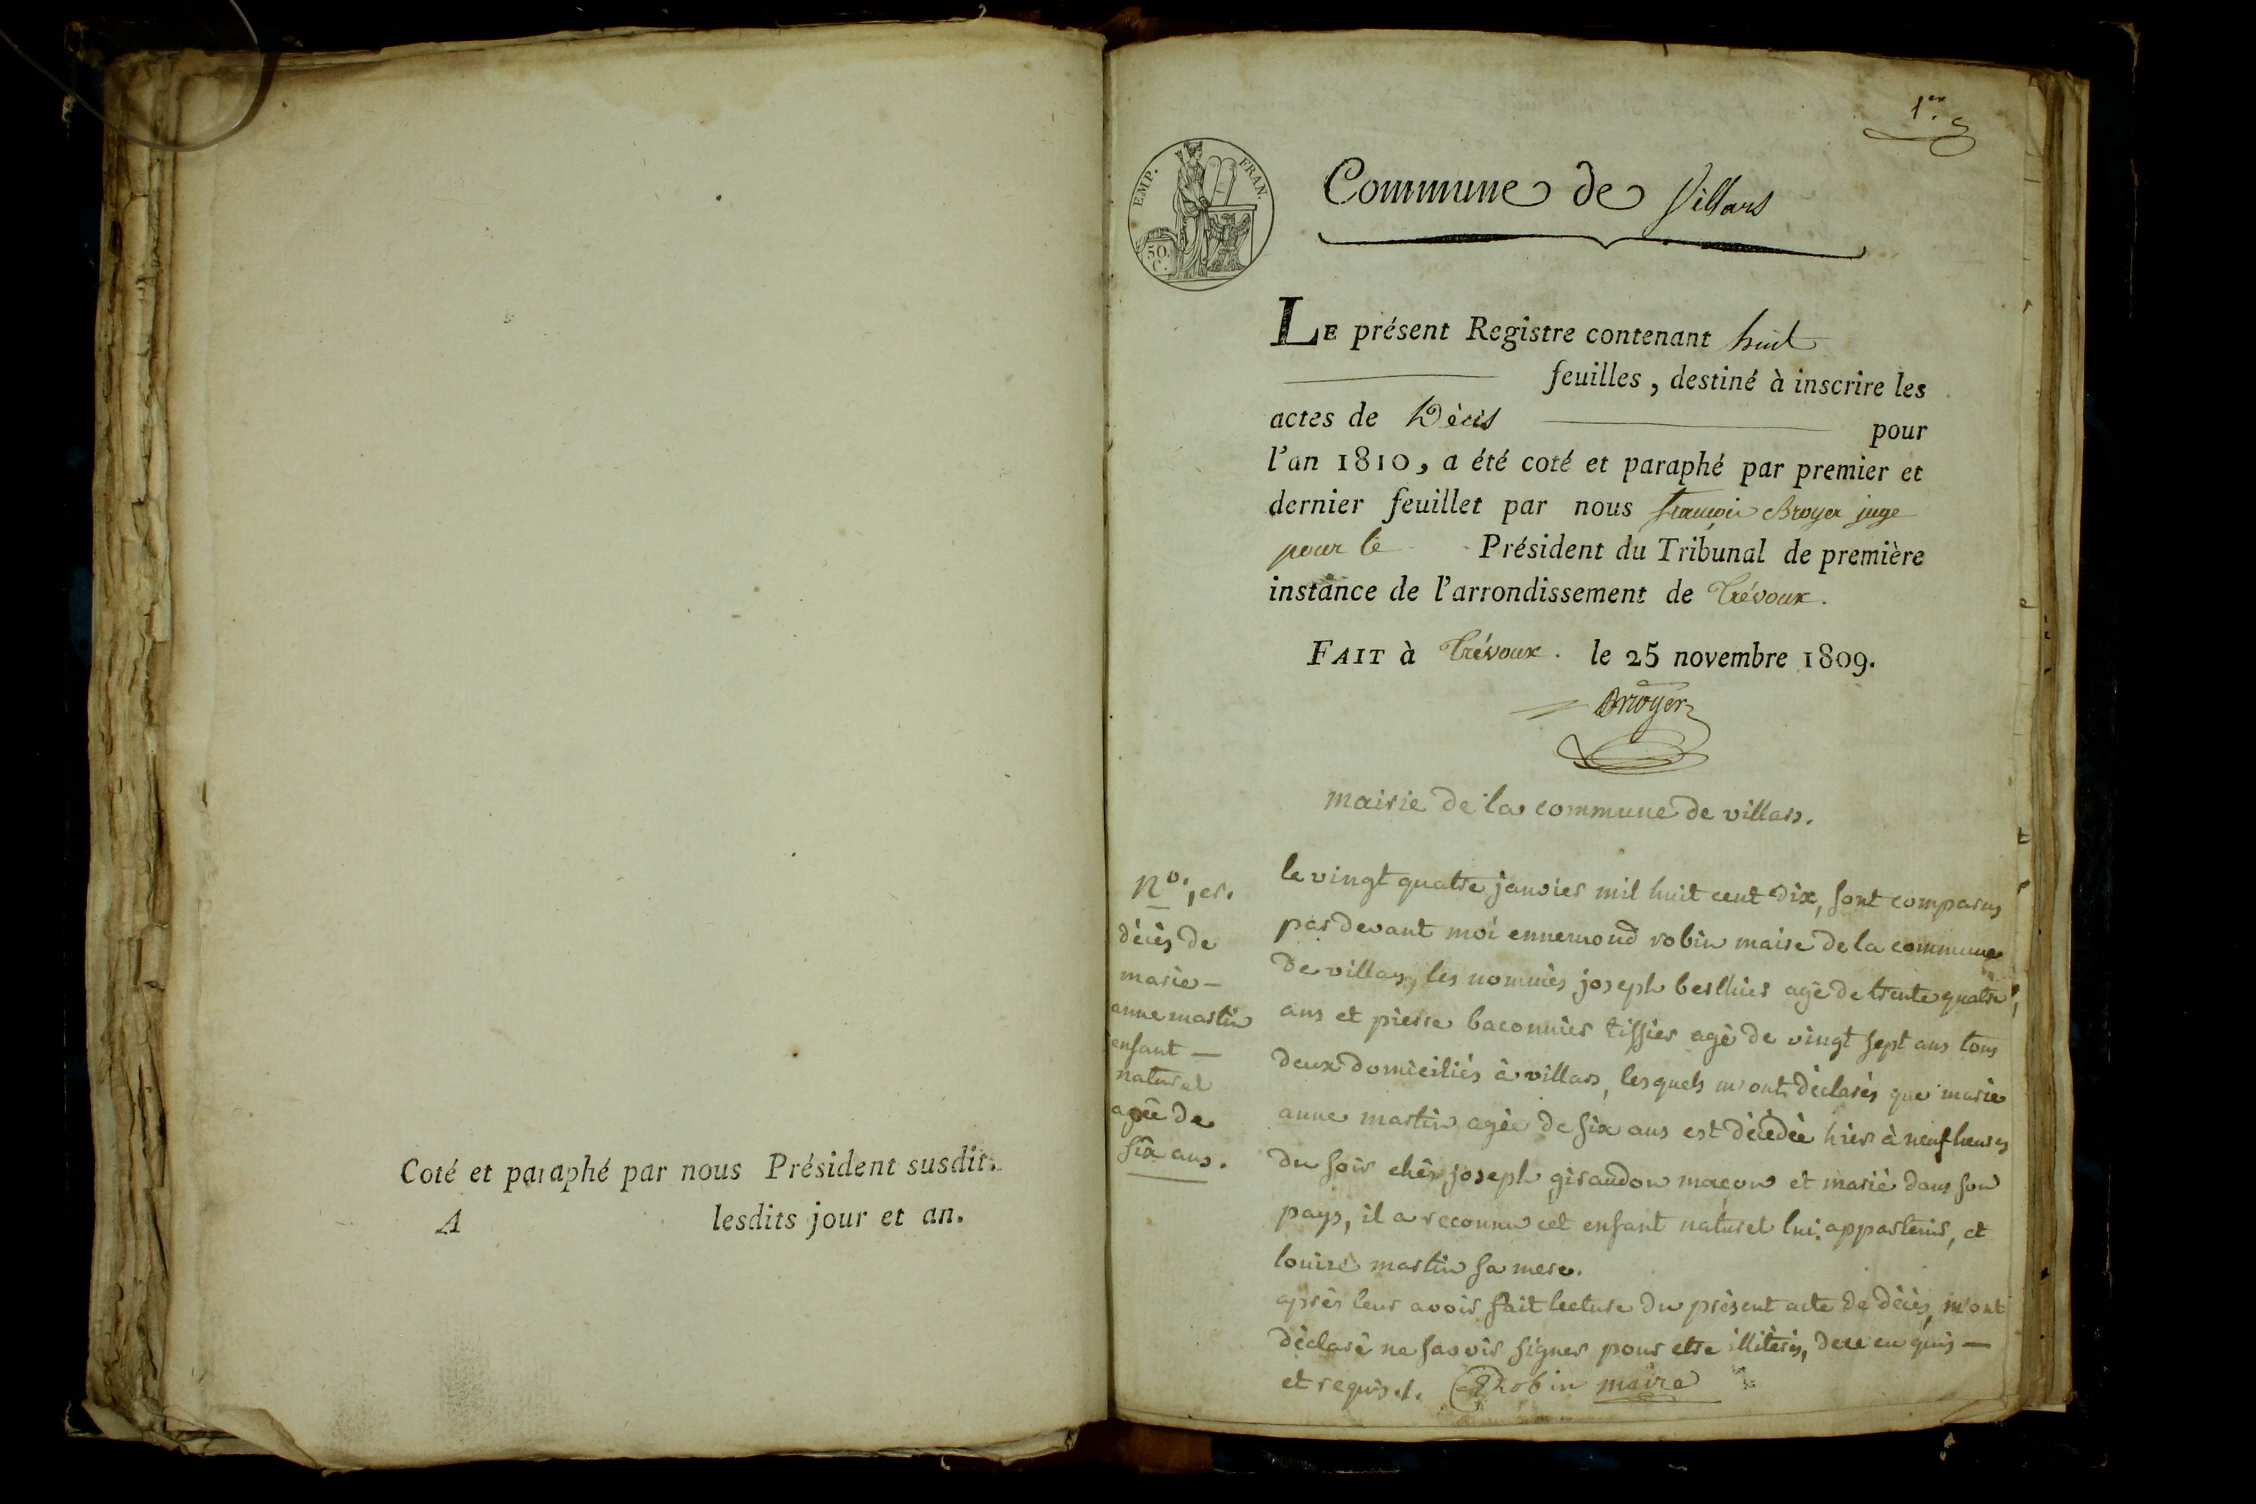 Coté et paraphé par nous Président susdit.
A lesdits jour et an.
1er.
EMP. FRAN.
50.
C.
Commune de Villars
LE présent Registre contenant huit
feuilles, destiné à inscrire les
actes de Décès pour
l'an 1810, a été coté et paraphé par premier et
dernier feuillet par nous françois Broyer juge
pour le Président du Tribunal de première
instance de l'arrondissement de Trévoux.
FAIT à Trévoux. le 25 novembre 1809.
Broyer
mairie de la commune de villars.
No. 1er.
décès de
marie-
anne martin
enfant —
naturel
agée de
six ans.
le vingt quatre janvier mil huit cent dix, sont comparus
pardevant moi ennemond robin maire de la commune
de villars, les nommés joseph berlhier agé de trente quatre
ans et pierre baconnier tissier agé de vingt sept ans tous
deux domiciliés à villars, lesquels m'ont déclarés que marie
anne martin agée de six ans est décédée hier à neuf heures
du soir chés joseph giraudon maçon et marié dans son
pays, il a reconnu cet enfant naturel lui appartenir, et
louise martin sa mere.
après leur avoir fait lecture du présent acte de décès, m'ont
déclaré ne savoir signer pour etre illiterés, de ce enquis —
et requis. Robin maire